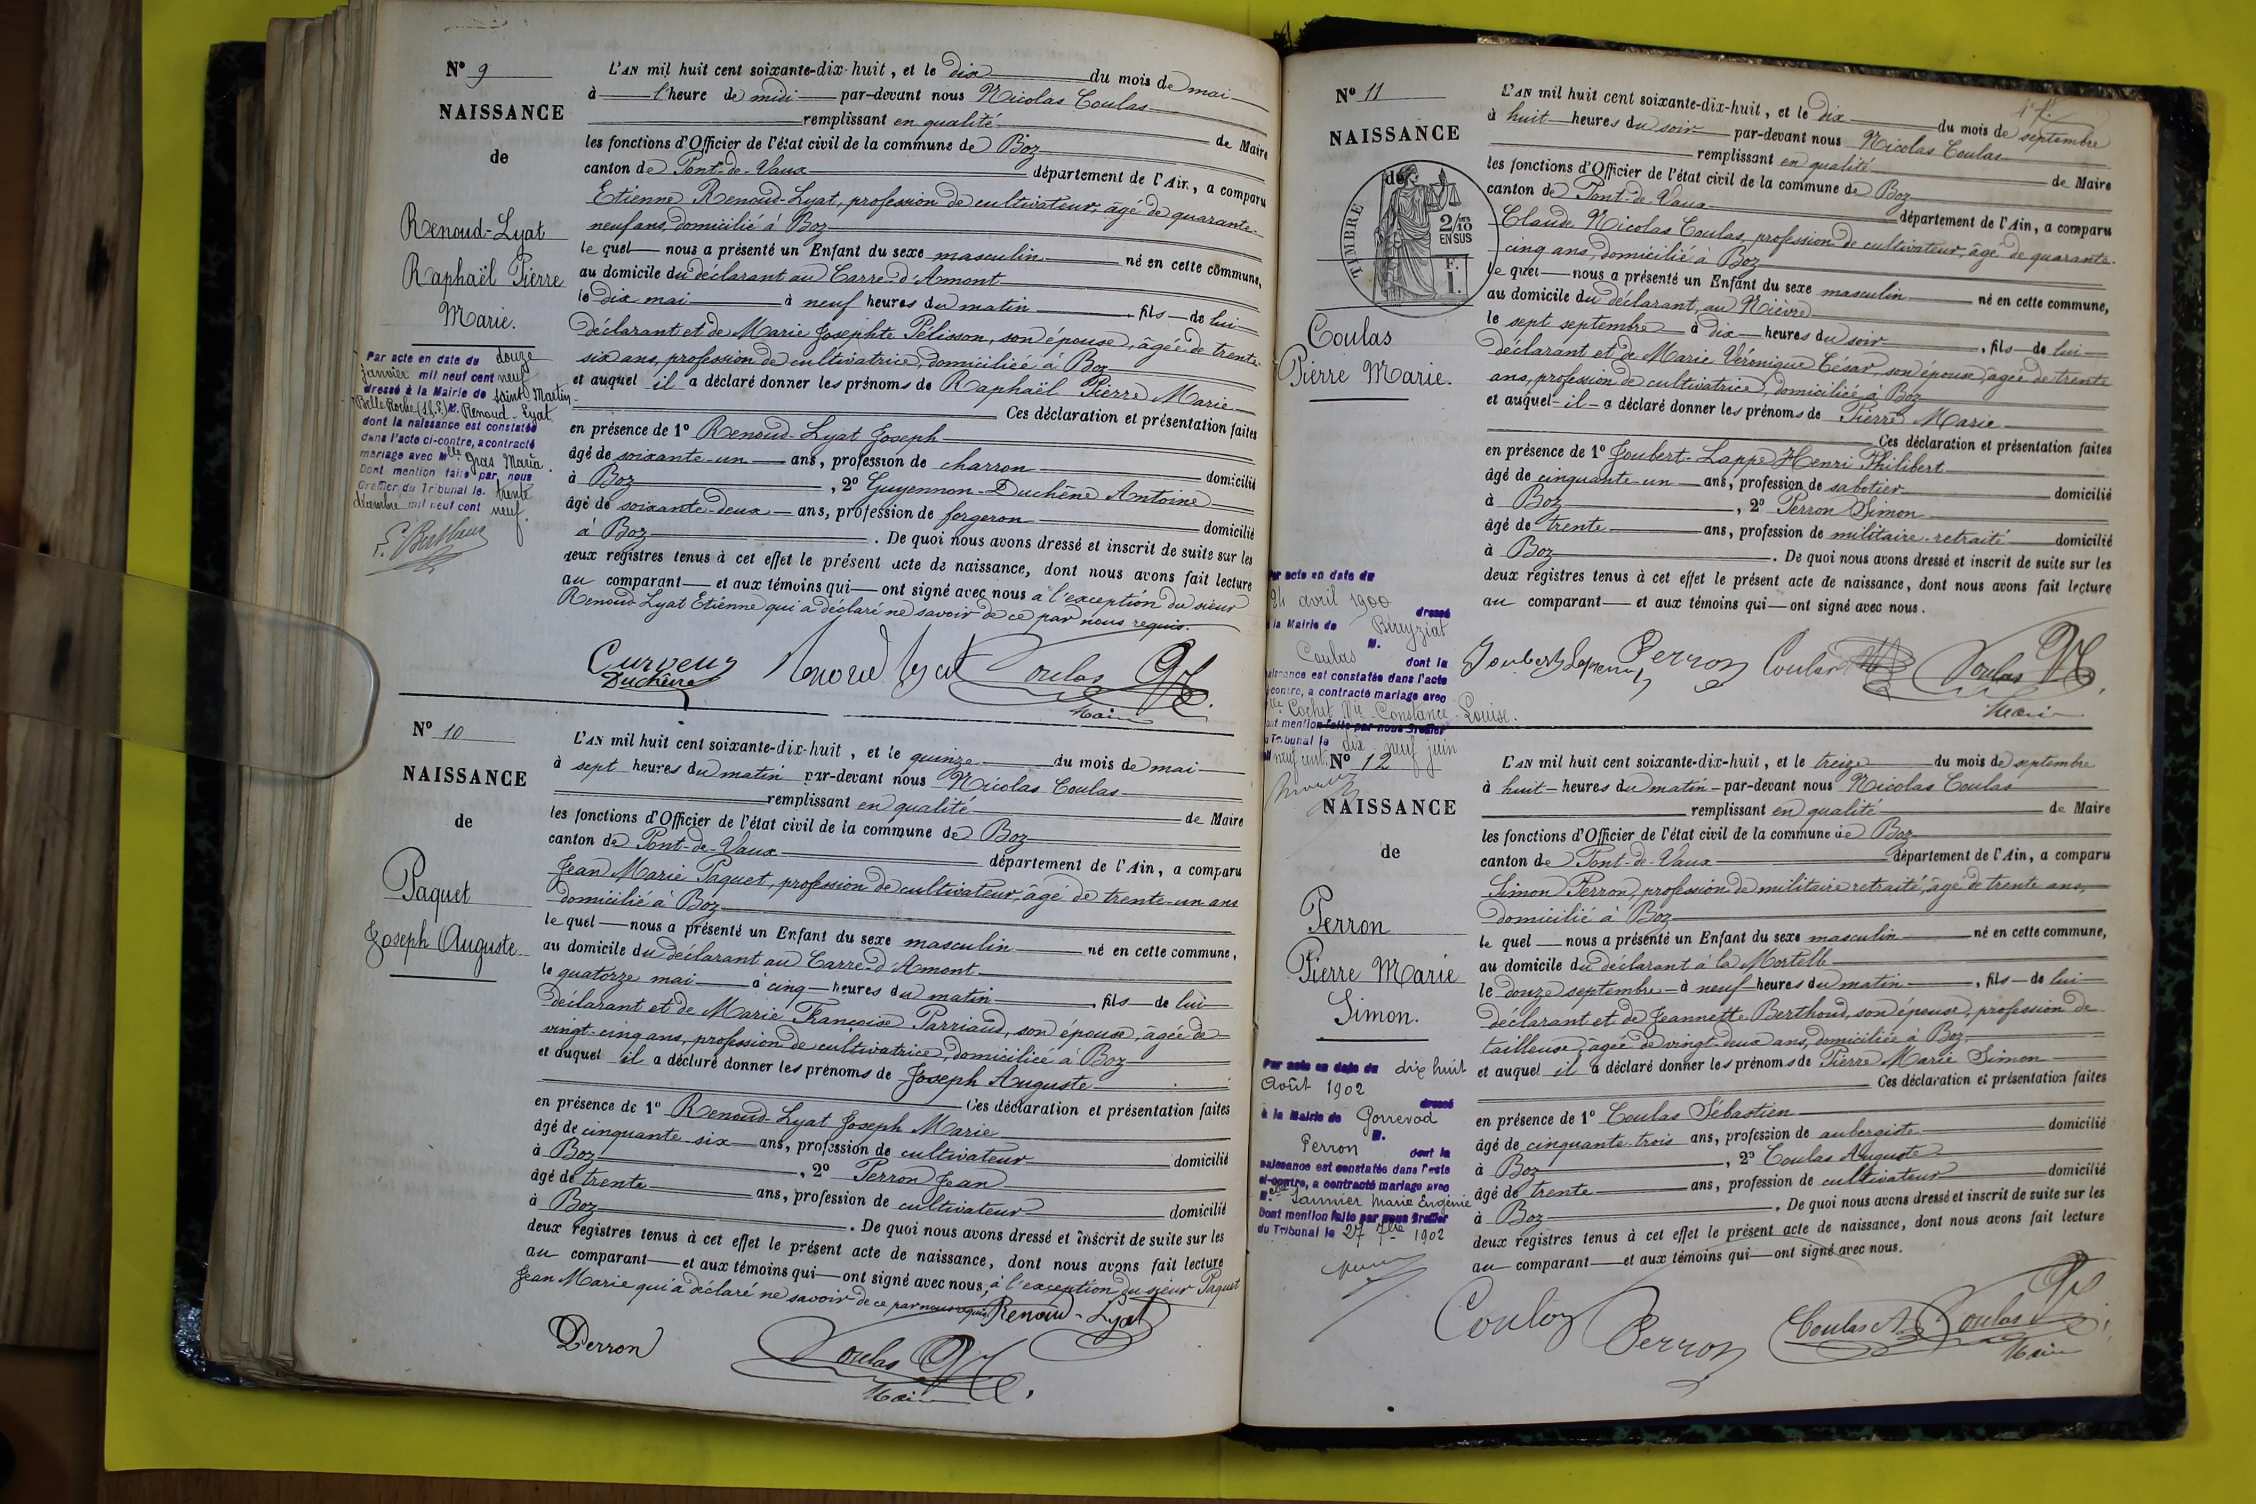 N° 9
NAISSANCE
de
Renoud-Lyat
Raphaël Pierre
Marie.
Par acte en date du douze
janvier mil neuf cent neuf
dressé à la Mairie de Saint Martin
Belle Roche (S.&.L) M. Renoud-Lyat
dont la naissance est constatée
dans l'acte ci-contre, a contracté
mariage avec Mlle Gras Maria.
Dont mention faite par nous
Greffier du Tribunal le trente
décembre mil neuf cent neuf.
L'AN mil huit cent soixante-dix-huit, et le dix du mois de mai
à l'heure de midi par-devant nous Nicolas Coulas
remplissant en qualité de Maire
les fonctions d'Officier de l'état civil de la commune de Boz
canton de Pont-de-Vaux département de l'Ain, a comparu
Etienne Renoud-Lyat, profession de cultivateur, âgé de quarante-
neuf ans, domicilié à Boz
le quel nous a présenté un Enfant du sexe masculin né en cette commune,
au domicile du déclarant au Carre d'Amont
le dix mai à neuf heures du matin, fils de lui
déclarant et de Marie Josephte Pélisson, son épouse, âgée de trente
six ans, profession de cultivatrice, domiciliée à Boz
et auquel il a déclaré donner les prénoms de Raphaël Pierre Marie
Ces déclaration et présentation faites
en présence de 1° Renoud-Lyat Joseph
âgé de soixante-un ans, profession de charron domicilié
à Boz, 2° Guyennon-Duchêne Antoine
âgé de soixante-deux ans, profession de forgeron domicilié
à Boz. De quoi nous avons dressé et inscrit de suite sur les
deux registres tenus à cet effet le présent acte de naissance, dont nous avons fait lecture
au comparant et aux témoins qui ont signé avec nous à l'exception du sieur
Renoud-Lyat Etienne qui a déclaré ne savoir de ce par nous requis.
Duchêne Renoud Lyat Coulas
Maire
N° 10
NAISSANCE
de
Paquet
Joseph Auguste
L'AN mil huit cent soixante-dix-huit, et le quinze du mois de mai
à sept heures du matin par-devant nous Nicolas Coulas
remplissant en qualité de Maire
les fonctions d'Officier de l'état civil de la commune de Boz
canton de Pont-de-Vaux département de l'Ain, a comparu
Jean Marie Paquet, profession de cultivateur, âgé de trente-un ans
domicilié à Boz
le quel nous a présenté un Enfant du sexe masculin né en cette commune,
au domicile du déclarant au Carre d'Amont
le quatorze mai à cinq heures du matin, fils de lui
déclarant et de Marie Françoise Parriaud, son épouse, âgée de
vingt-cinq ans, profession de cultivatrice, domiciliée à Boz
et auquel il a déclaré donner les prénoms de Joseph Auguste
Ces déclaration et présentation faites
en présence de 1° Renoud-Lyat Joseph Marie
âgé de cinquante-six ans, profession de cultivateur domicilié
à Boz, 2° Perron Jean
âgé de trente ans, profession de cultivateur domicilié
à Boz. De quoi nous avons dressé et inscrit de suite sur les
deux registres tenus à cet effet le présent acte de naissance, dont nous avons fait lecture
au comparant et aux témoins qui ont signé avec nous, à l'exception du sieur Paquet
Jean Marie qui a déclaré ne savoir de ce par nous requis. Renoud-Lyat
Perron Coulas
Maire
N° 11
NAISSANCE
de
TIMBRE
2/10
EN SUS
F.
1.
Coulas
Pierre Marie.
Par acte en date du
24 avril 1900
dressé
à la Mairie de Béreyziat
M.
Coulas dont la
naissance est constatée dans l'acte
ci-contre, a contracté mariage avec
Mlle Cochet Constance Louise.
Dont mention faite par nous Greffier
du Tribunal le dix-neuf juin
mil neuf cent.
L'AN mil huit cent soixante-dix-huit, et le dix du mois de septembre
à huit heures du soir par-devant nous Nicolas Coulas
remplissant en qualité de Maire
les fonctions d'Officier de l'état civil de la commune de Boz
canton de Pont-de-Vaux département de l'Ain, a comparu
Claude Nicolas Coulas, profession de cultivateur, âgé de quarante-
cinq ans, domicilié à Boz
le quel nous a présenté un Enfant du sexe masculin né en cette commune,
au domicile du déclarant, au Nièvre
le sept septembre à dix heures du soir, fils de lui
déclarant et de Marie Véronique César, son épouse, âgée de trente
ans, profession de cultivatrice, domiciliée à Boz
et auquel il a déclaré donner les prénoms de Pierre Marie
Ces déclaration et présentation faites
en présence de 1° Joubert-Lappe Henri Philibert
âgé de cinquante-un ans, profession de sabotier domicilié
à Boz, 2° Perron Simon
âgé de trente ans, profession de militaire retraité domicilié
à Boz. De quoi nous avons dressé et inscrit de suite sur les
deux registres tenus à cet effet le présent acte de naissance, dont nous avons fait lecture
au comparant et aux témoins qui ont signé avec nous.
Joubert Perron Coulas Coulas
Maire
N° 12
NAISSANCE
de
Perron
Pierre Marie
Simon.
Par acte en date du dix huit
Août 1902
dressé
à la Mairie de Gorrevod
M.
Perron dont la
naissance est constatée dans l'acte
ci-contre, a contracté mariage avec
Mlle Marie Eugénie
Dont mention faite par nous Greffier
du Tribunal le 27 7bre 1902
L'AN mil huit cent soixante-dix-huit, et le treize du mois de septembre
à huit heures du matin par-devant nous Nicolas Coulas
remplissant en qualité de Maire
les fonctions d'Officier de l'état civil de la commune de Boz
canton de Pont-de-Vaux département de l'Ain, a comparu
Simon Perron, profession de militaire retraité, âgé de trente ans,
domicilié à Boz
le quel nous a présenté un Enfant du sexe masculin né en cette commune,
au domicile du déclarant à la Mortelle
le douze septembre à neuf heures du matin, fils de lui
déclarant et de Jeannette Berthoud, son épouse, profession de
tailleuse, âgée de vingt-deux ans, domiciliée à Boz
et auquel il a déclaré donner les prénoms de Pierre Marie Simon
Ces déclaration et présentation faites
en présence de 1° Coulas Sébastien
âgé de cinquante-trois ans, profession de aubergiste domicilié
à Boz, 2° Coulas Auguste
âgé de trente ans, profession de cultivateur domicilié
à Boz. De quoi nous avons dressé et inscrit de suite sur les
deux registres tenus à cet effet le présent acte de naissance, dont nous avons fait lecture
au comparant et aux témoins qui ont signé avec nous.
Coulas Perron Coulas A. Coulas
Maire